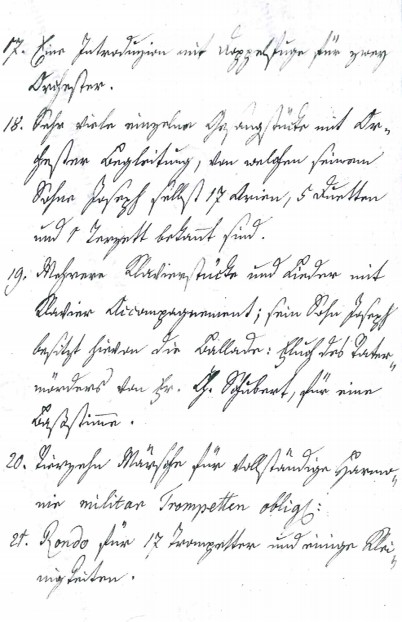 17. Eine Introduzion mit Doppelfuge für zwey
Orchester.
18. Sehr viele einzelne Gesangstücke mit Or-
chester Begleitung, von welchen seinem
Sohne Joseph selbst 17 Arien, 5 Duetten
und 1 Terzett bekannt sind.
19. Mehrere Klavierstücke und Lieder mit
Klavier Accompagnement; sein Sohn Joseph
besitzt hievon die Ballade: Fluch des Vater-
mörders von Fr. Schubert, für eine
Baßstimme.
20. Vierzehn Märsche für vollständige Harmo-
nie militar Trompetten obligt:
21. Rondo für 17 Trompetter und einige Klei-
nigkeiten.